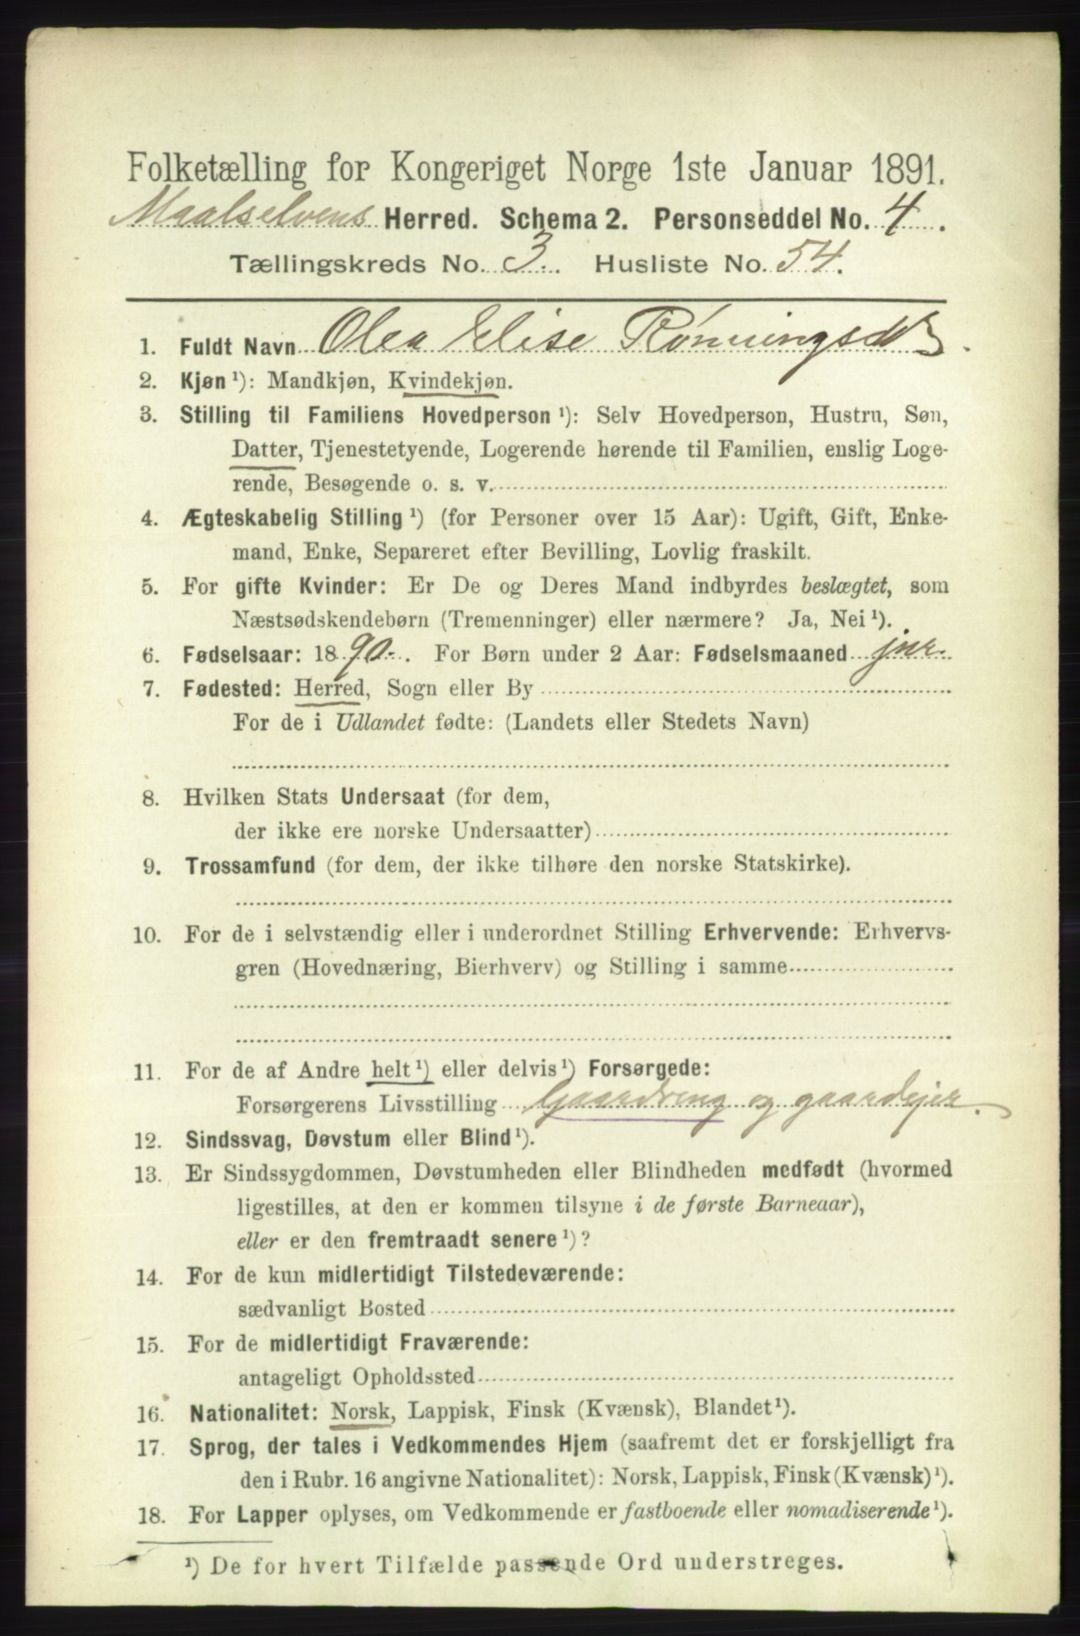 Folketælling for Kongeriget Norge 1ste Januar 1891.
Maalselvens Herred. Schema 2. Personseddel No. 4.
Tællingskreds No. 3. Husliste No. 54.
1. Fuldt Navn Olea Elise Rønningsdtr.
2. Kjøn ¹): Mandkjøn, Kvindekjøn.
3. Stilling til Familiens Hovedperson ¹): Selv Hovedperson, Hustru, Søn,
Datter, Tjenestetyende, Logerende hørende til Familien, enslig Loge-
rende, Besøgende o. s. v.
4. Ægteskabelig Stilling ¹) (for Personer over 15 Aar): Ugift, Gift, Enke-
mand, Enke, Separeret efter Bevilling, Lovlig fraskilt.
5. For gifte Kvinder: Er De og Deres Mand indbyrdes beslægtet, som
Næstsødskendebørn (Tremenninger) eller nærmere? Ja, Nei ¹).
6. Fødselsaar: 1890. For Børn under 2 Aar: Fødselsmaaned
7. Fødested: Herred, Sogn eller By
For de i Udlandet fødte: (Landets eller Stedets Navn)
8. Hvilken Stats Undersaat (for dem,
der ikke ere norske Undersaatter)
9. Trossamfund (for dem, der ikke tilhøre den norske Statskirke).
10. For de i selvstændig eller i underordnet Stilling Erhvervende: Erhvervs-
gren (Hovednæring, Bierhverv) og Stilling i samme
11. For de af Andre helt ¹) eller delvis ¹) Forsørgede:
Forsørgerens Livsstilling Gaardbrug og gaardejer.
12. Sindssvag, Døvstum eller Blind ¹).
13. Er Sindssygdommen, Døvstumheden eller Blindheden medfødt (hvormed
ligestilles, at den er kommen tilsyne i de første Barneaar),
eller er den fremtraadt senere ¹)?
14. For de kun midlertidigt Tilstedeværende:
sædvanligt Bosted
15. For de midlertidigt Fraværende:
antageligt Opholdssted
16. Nationalitet: Norsk, Lappisk, Finsk (Kvænsk), Blandet ¹).
17. Sprog, der tales i Vedkommendes Hjem (saafremt det er forskjelligt fra
den i Rubr. 16 angivne Nationalitet): Norsk, Lappisk, Finsk (Kvænsk) ¹).
18. For Lapper oplyses, om Vedkommende er fastboende eller nomadiserende ¹).
¹) De for hvert Tilfælde passende Ord understreges.